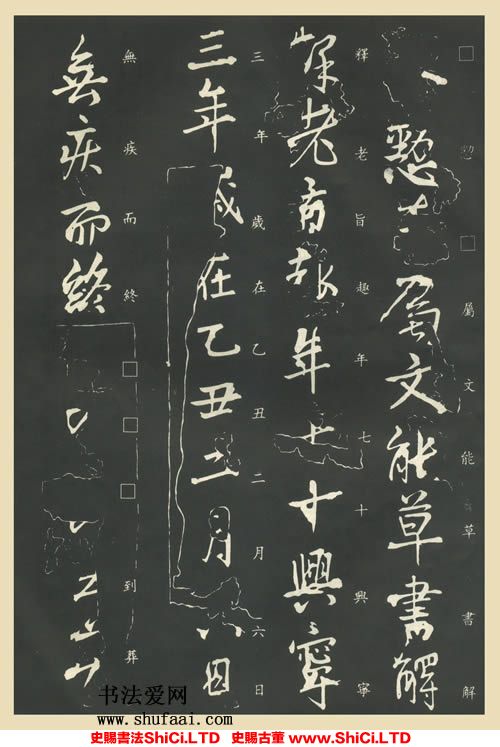 □懃□屬文能草書解
懃屬文能草書解
釋老旨趣年七十興寧
釋老旨趣年七十興寧
三年歲在乙丑二月六日
三年歲在乙丑二月六日
無疾而終□□□到葬
無疾而終
书法爱网
www.shufaai.com
史賜書法ShiCi.LTD 史賜古董 www.ShiCi.LTD